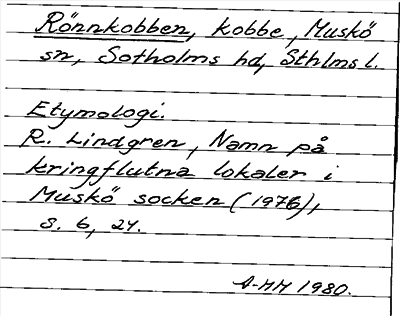 Rönnkobben, kobbe, Muskö
sn, Sotholms hd, Sthlms l.
Etymologi.
R. Lindgren, Namn på
kringflutna lokaler i
Muskö socken (1976),
s. 6, 24.
A-MH 1980.